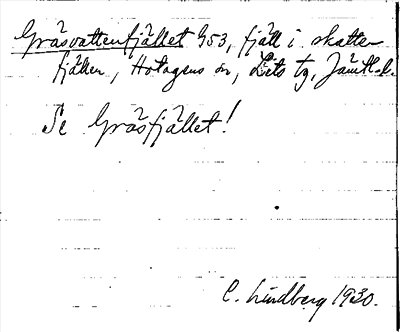 Gräsvattenfjället G53, fjäll i skatte-
fjällen, Hotagens sn, Lits tg, Jämtl. l.
Se Gräsfjället!
C. Lindberg 1930.